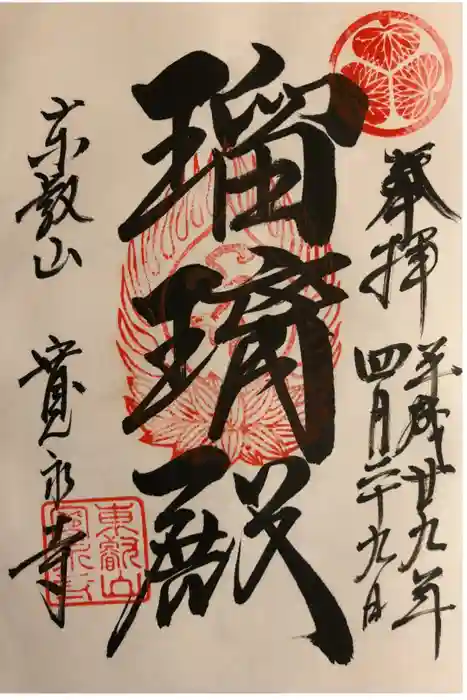 奉拝
平成廿九年
四月二十九日
瑠璃殿
東叡山
寛永寺
東叡山
寛永寺